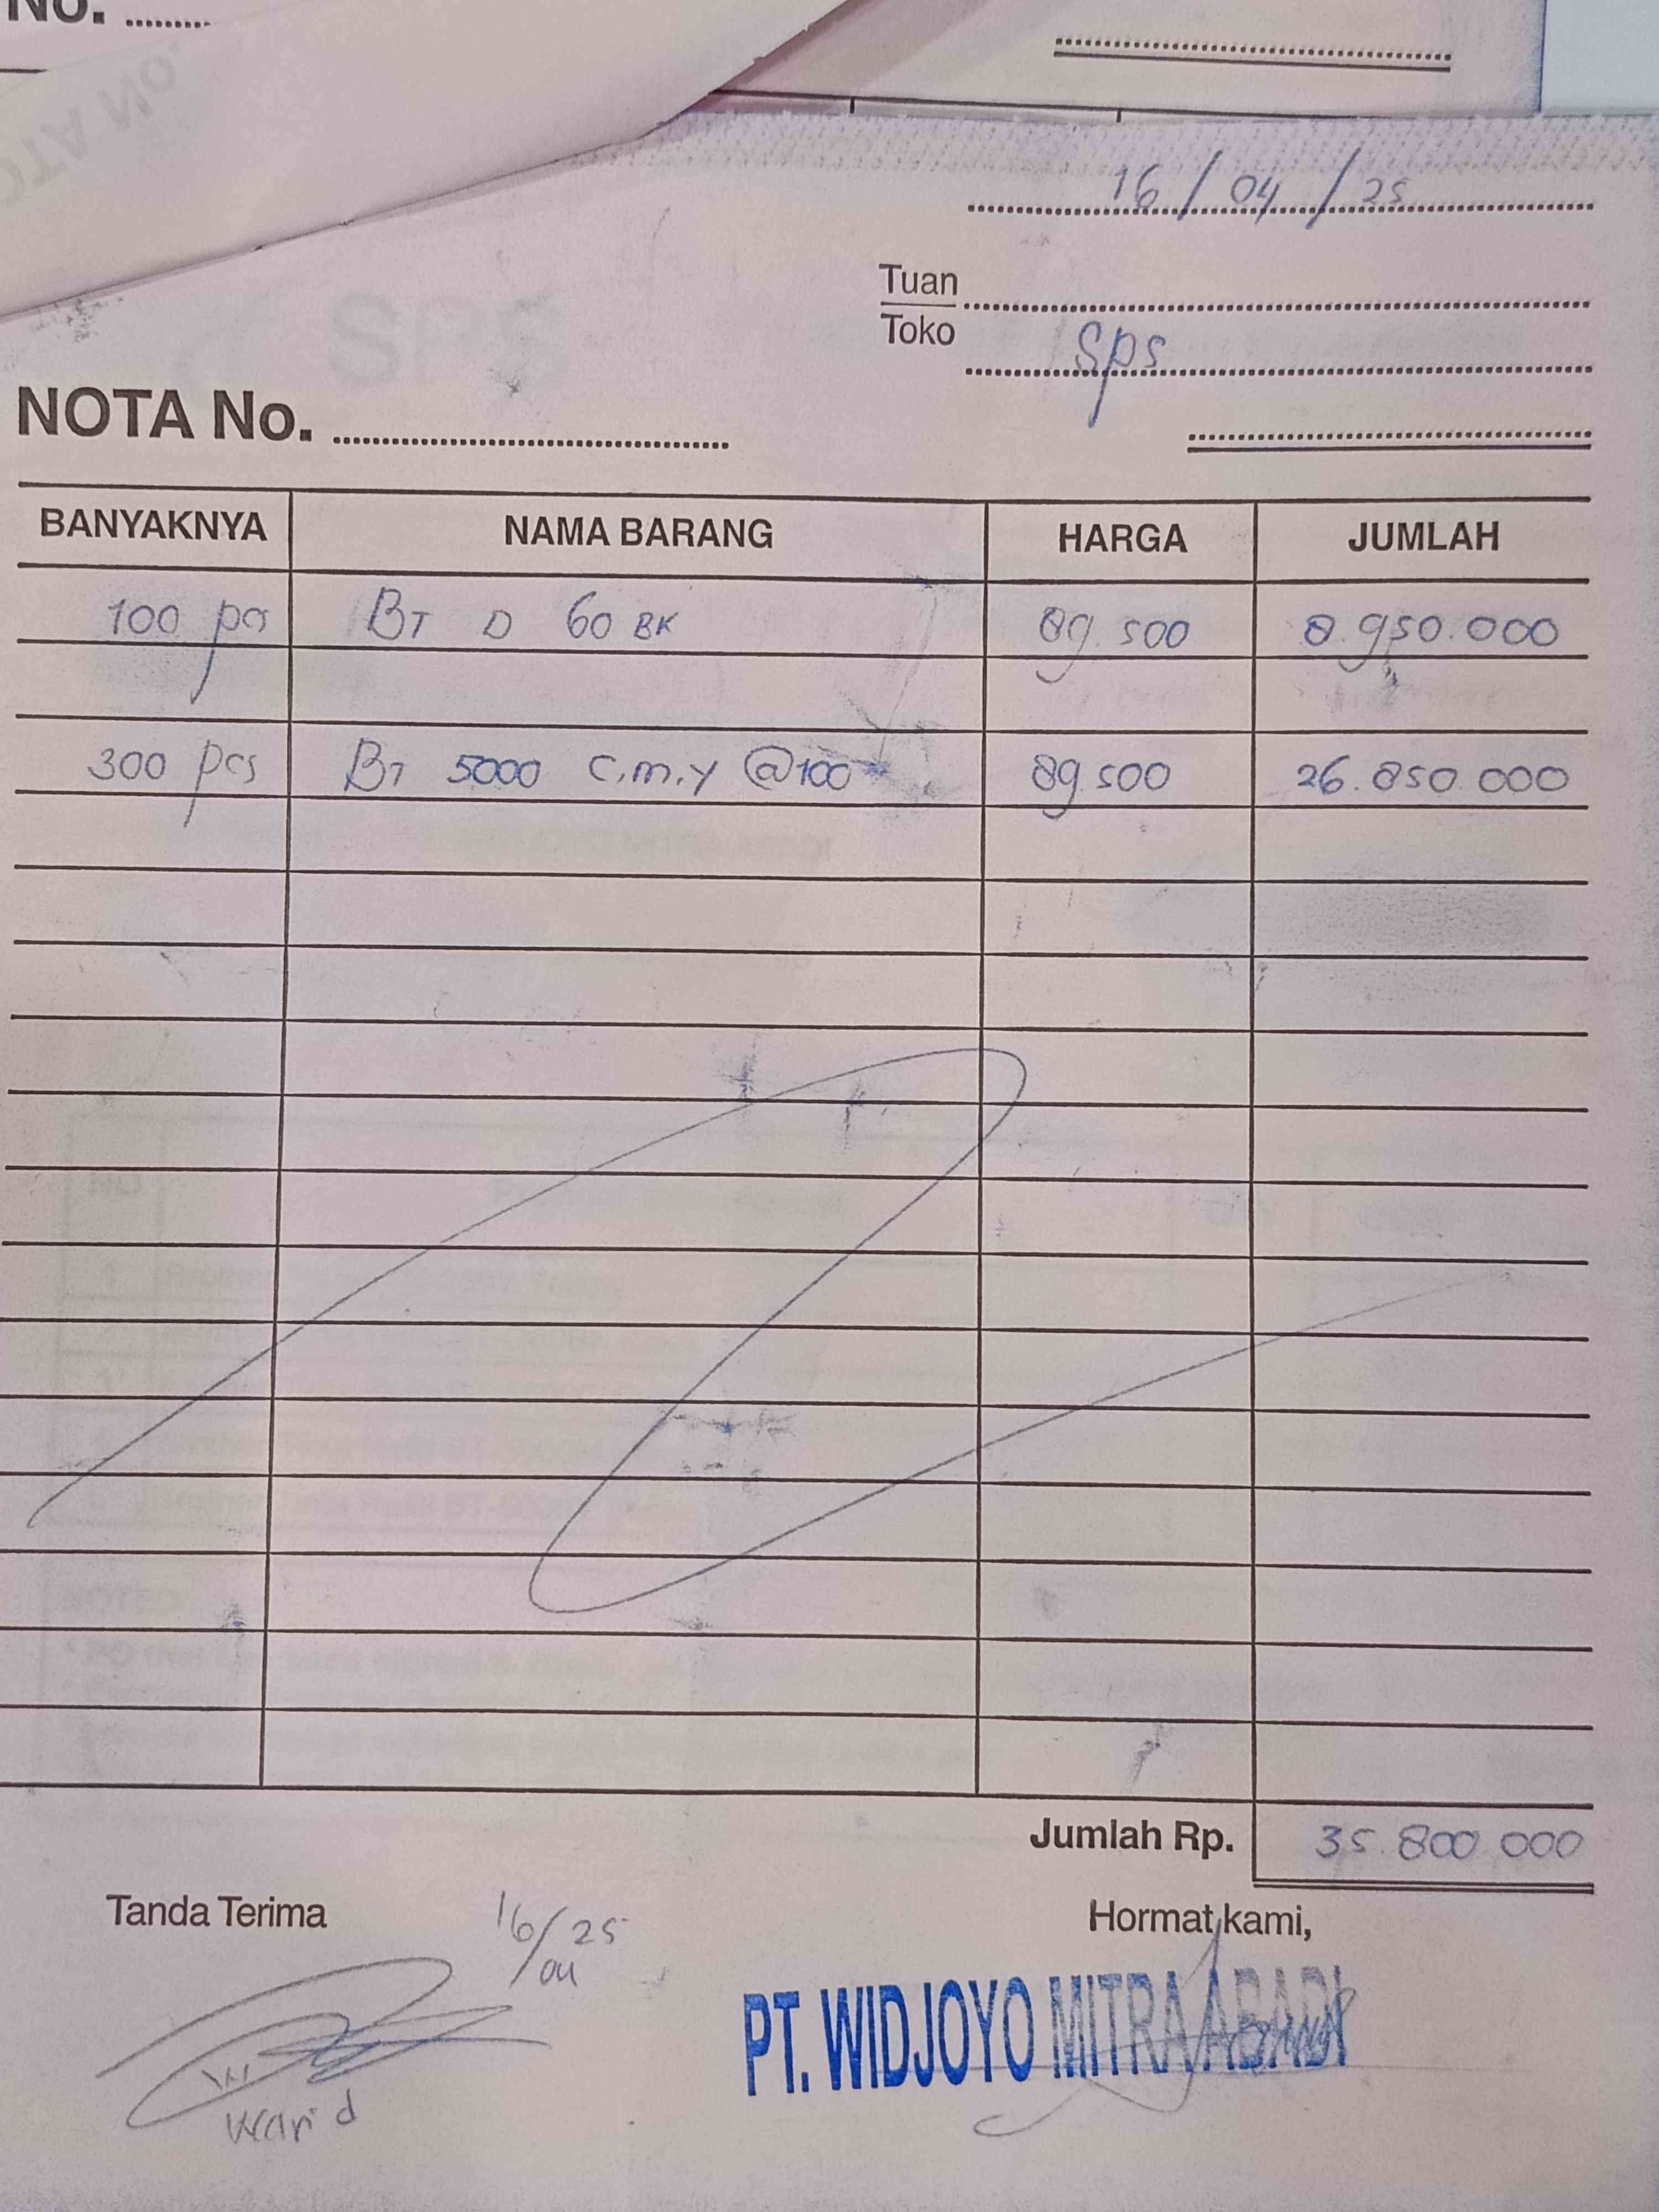 No. ..........
NOTA No.
16 / 04 / 25
Tuan
Toko
Sps
SPS
NOTA No. ..........
BANYAKNYA NAMA BARANG HARGA JUMLAH
100 pcs BT D 60 BK 89.500 8.950.000
300 pcs BT 5000 C.m.y @100 89.500 26.850.000
Jumlah Rp. 35.800.000
Tanda Terima 16/04 25 Hormat kami,
PT. WIDJOYO MITRA ABADI
Warid